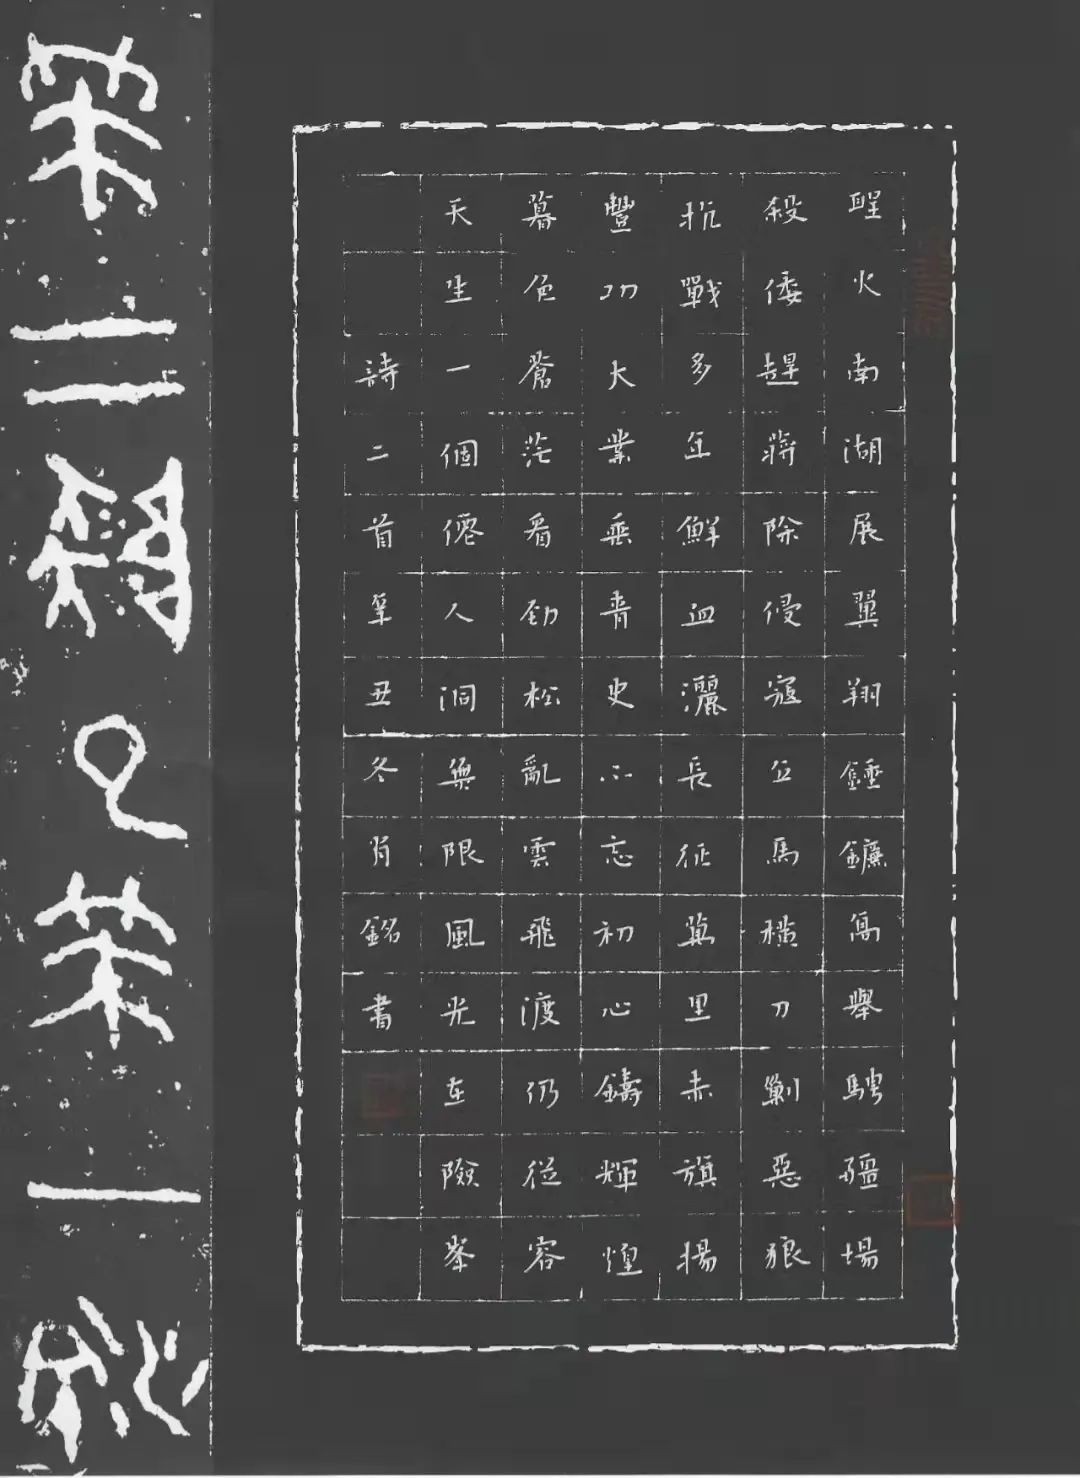 聖火南湖展翼翔錘鐮高舉騁疆場
殺倭趕蔣除侵寇立馬橫刀剿惡狼
抗戰多年鮮血灑長征萬里赤旗揚
豐功大業垂青史不忘初心鑄輝煌
暮色蒼茫看勁松亂雲飛渡仍從容
天生一個僊人洞無限風光在險峯
詩二首辛丑冬肖銘書